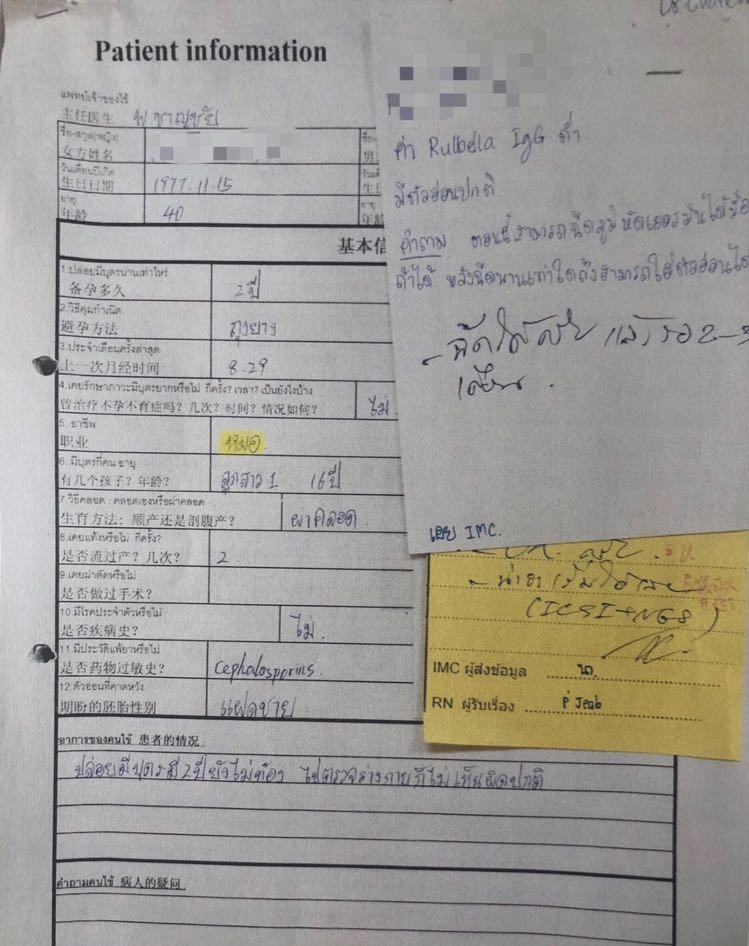 Patient information
แพทย์เจ้าของไข้
主任医生 พ ชาญชัย
ชื่อ-สกุล(หญิง)
女方姓名 男
วันเดือนปีเกิด
生日日期 1977.11.15
อายุ
年龄 40 年龄
基本信
1.ปล่อยมีบุตรนานเท่าไหร่
备孕多久 2ปี
2.วิธีคุมกำเนิด
避孕方法 ถุงยาง
3.ประจำเดือนครั้งล่าสุด
上一次月经时间 8.29
4.เคยรักษาภาวะมีบุตรยากหรือไม่ กี่ครั้ง? เวลา? เป็นยังไงบ้าง
曾治疗不孕不育症吗? 几次? 时间? 情况如何? ไม่
5. อาชีพ
职业 หมอ
6. มีบุตรกี่คน อายุ
有几个孩子? 年龄? ลูกสาว 1 16ปี
7.วิธีคลอด : คลอดเองหรือผ่าคลอด
生育方法: 顺产还是剖腹产? ผ่าคลอด
8.เคยแท้งหรือไม่ กี่ครั้ง?
是否流过产? 几次? 2
9.เคยผ่าตัดหรือไม่
是否做过手术?
10.มีโรคประจำตัวหรือไม่
是否疾病史? ไม่
11.มีประวัติแพ้ยาหรือไม่
是否药物过敏史? Cephalosporins
12.ตัวอ่อนที่คาดหวัง
期盼的胚胎性别 แฝดชาย
อาการของคนไข้ 患者的情况
ปล่อยมีบุตรมี 2 ปียังไม่ท้อง ไปตรวจร่างกายก็ไม่เห็นผิดปกติ
คำถามคนไข้ 病人的疑问
ค่า Rulbella IgG ต่ำ
มีตัวอ่อนปกติ
คำถาม ตอนนี้สามารถฉีดภูมิหัดเยอรมันได้
ถ้าได้ หลังฉีดนานเท่าใดถึงสามารถใส่ตัวอ่อนได้
- ฉีดได้ครับ แล้วรอ 2-3
เดือน.
เลย IMC.
(ICSI+NGS)
IMC ผู้ส่งข้อมูล นก.
RN ผู้รับเรื่อง P' Jeab